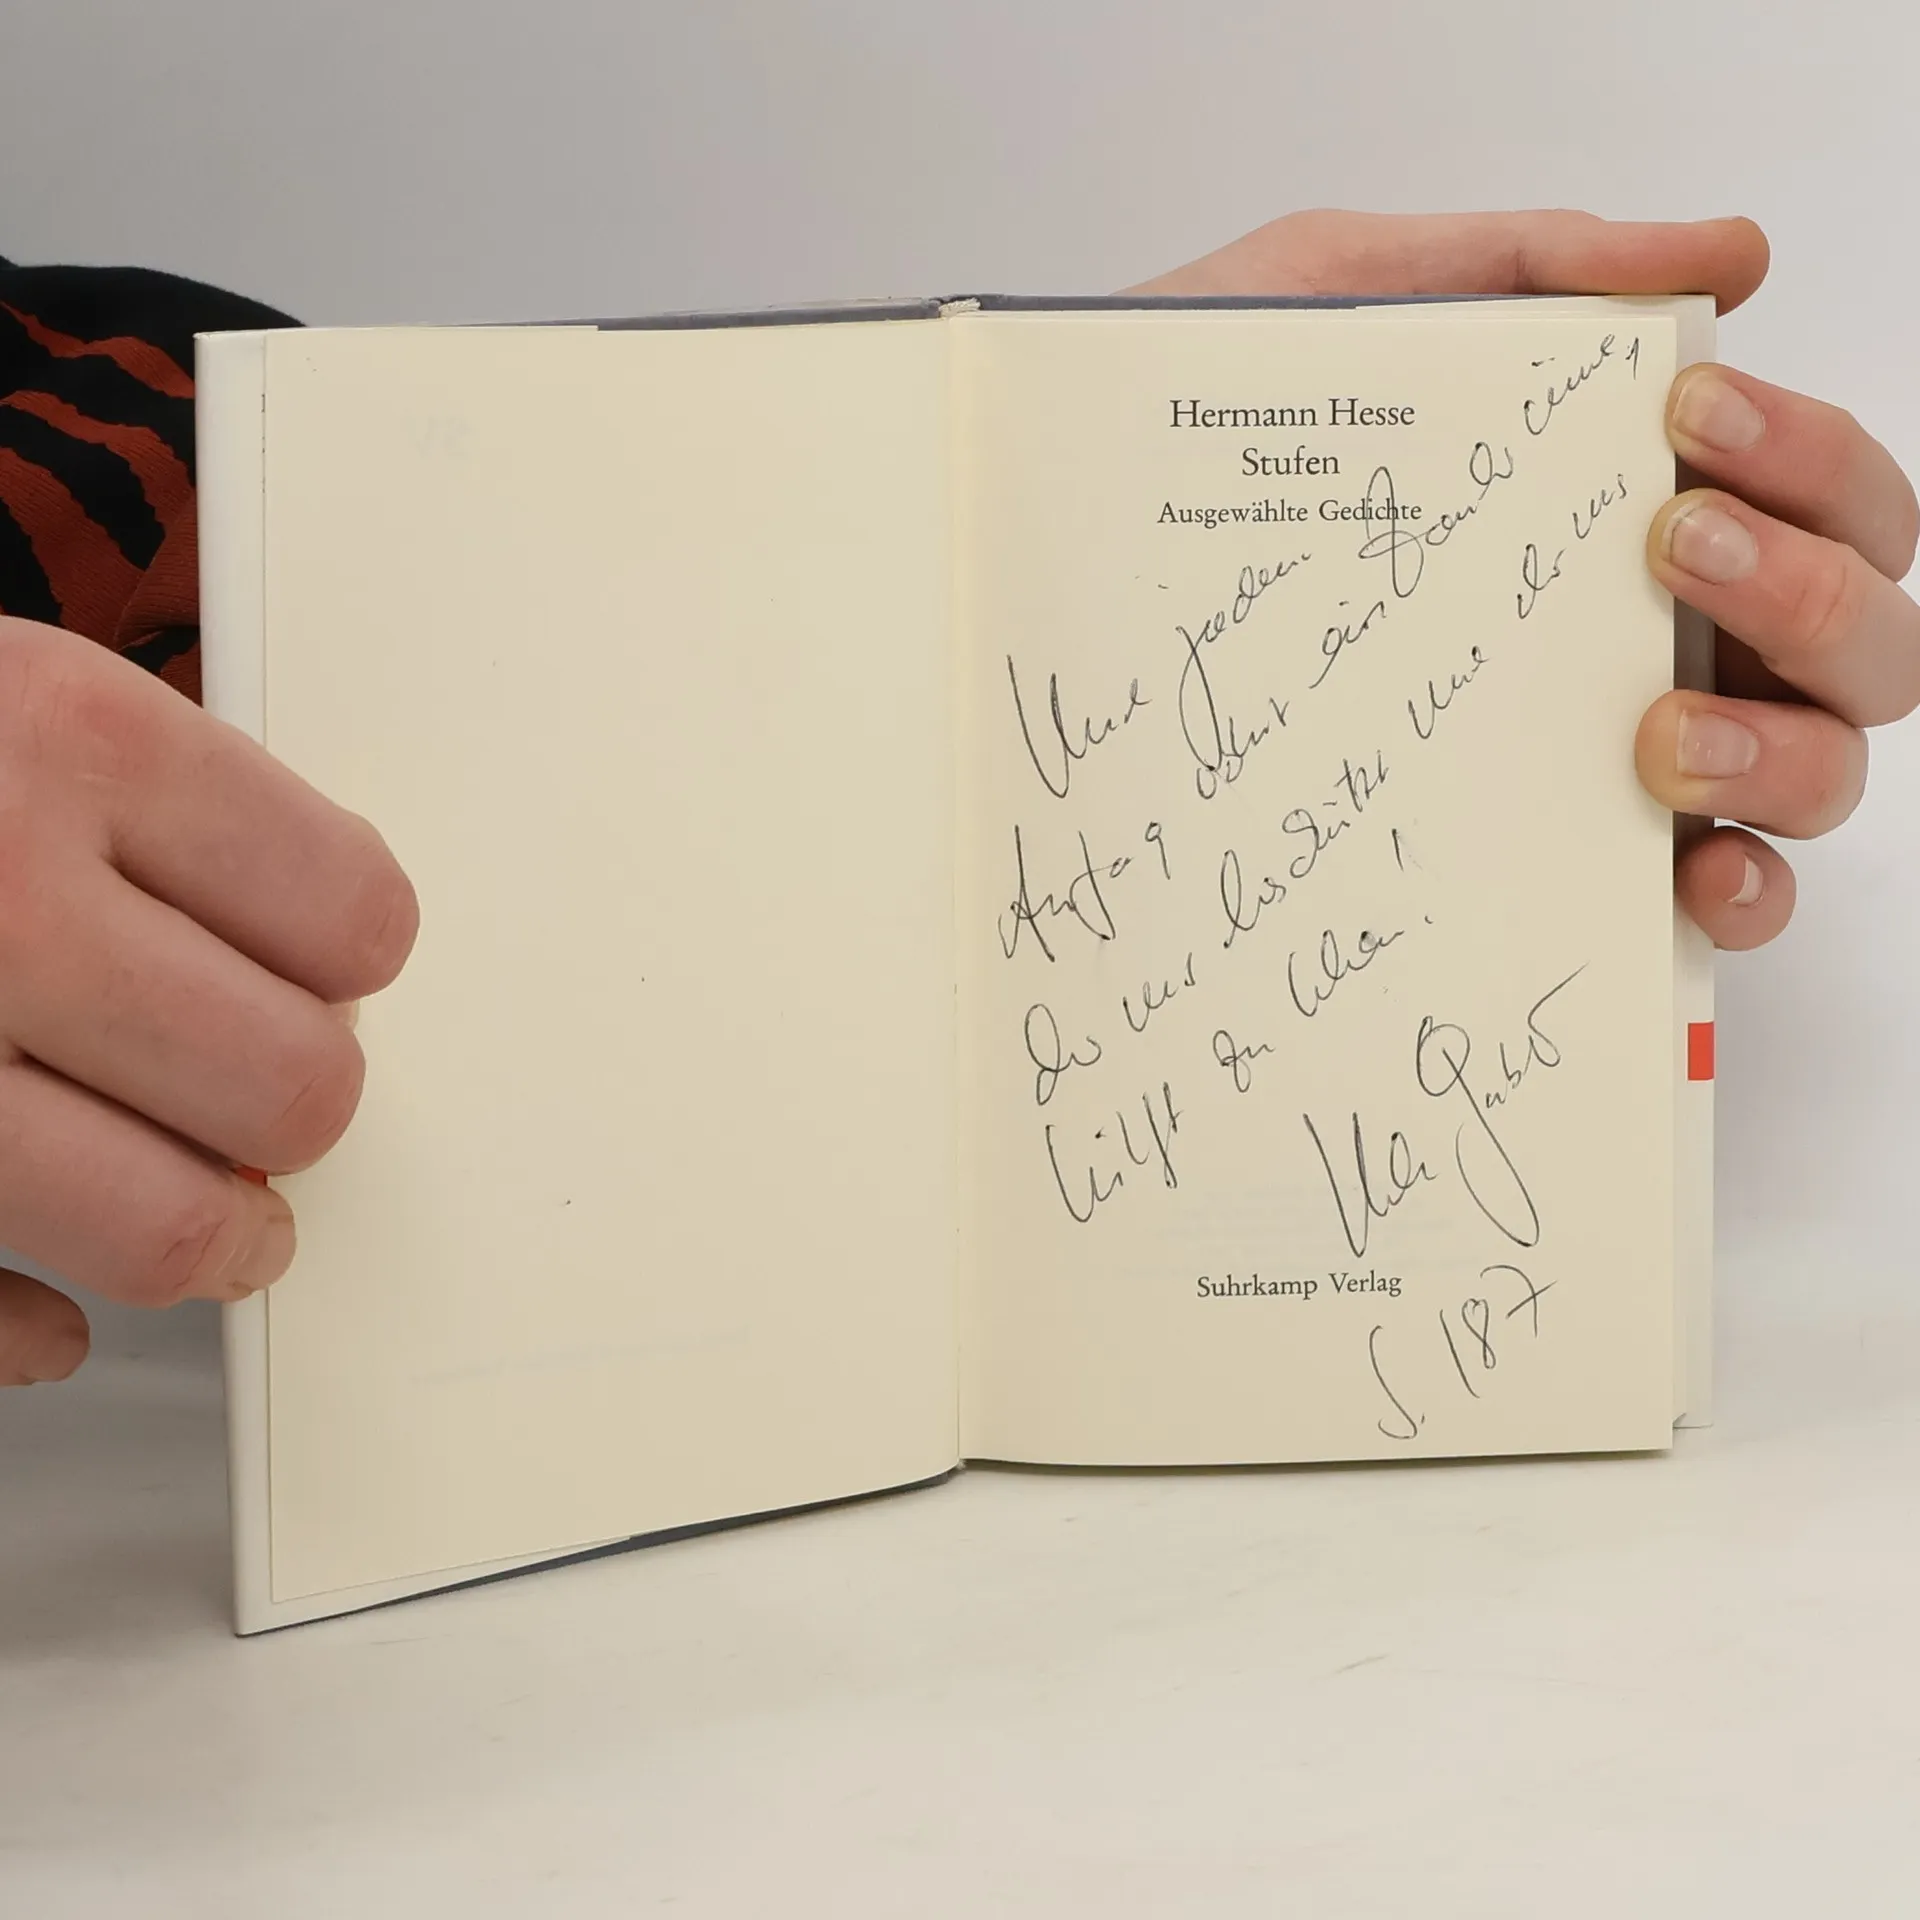 Hermann Hesse
Stufen
Ausgewählte Gedichte
Und jedem
Anfang wohnt ein Zauber inne,
der uns beschützt und der uns
hilft zu leben!
Suhrkamp Verlag
S. 187